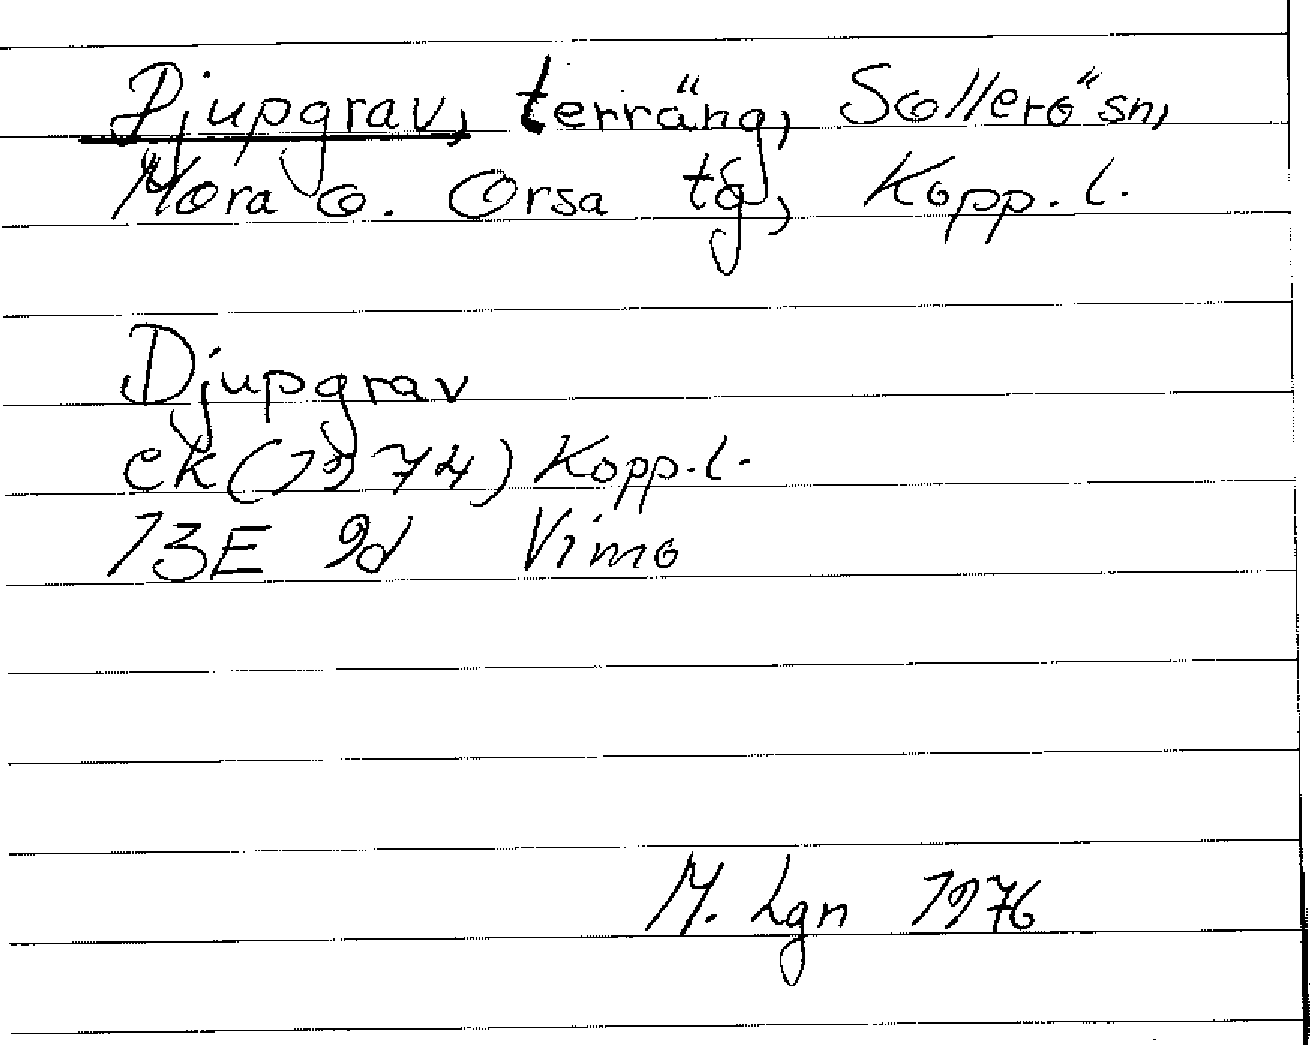 Djupgrav, terräng, Sollerö sn,
Mora o. Orsa tg, Kopp. l.
Djupgrav
ek (1974) Kopp. l.
13E 9d Vimo
M. Lgn 1976